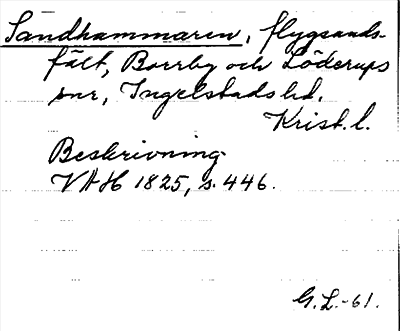 Sandhammaren, flygsands-
fält, Borrby och Löderups
snr, Ingelstads hd.
Krist. l.
Beskrivning
VAH 1825, s. 446.
G.L.-61.